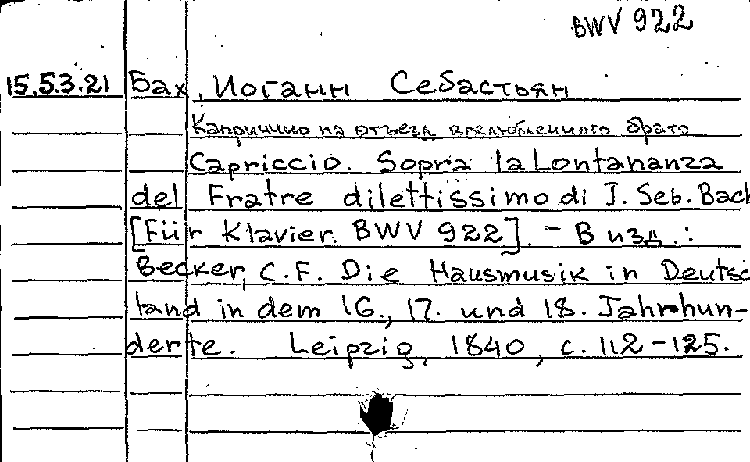 BWV 922
15.5.3.21 Бах, Иоганн Себастьян
Каприччио на отъезд возлюбленного брата
Capriccio. Sopra la Lontananza
del Fratre dilettissimo di J. Seb. Bach
[Für Klavier. BWV 922]. - В изд.:
Becker, C.F. Die Hausmusik in Deutsc
land in dem 16., 17. und 18. Jahrhun-
derte. Leipzig, 1840, c. 112-125.